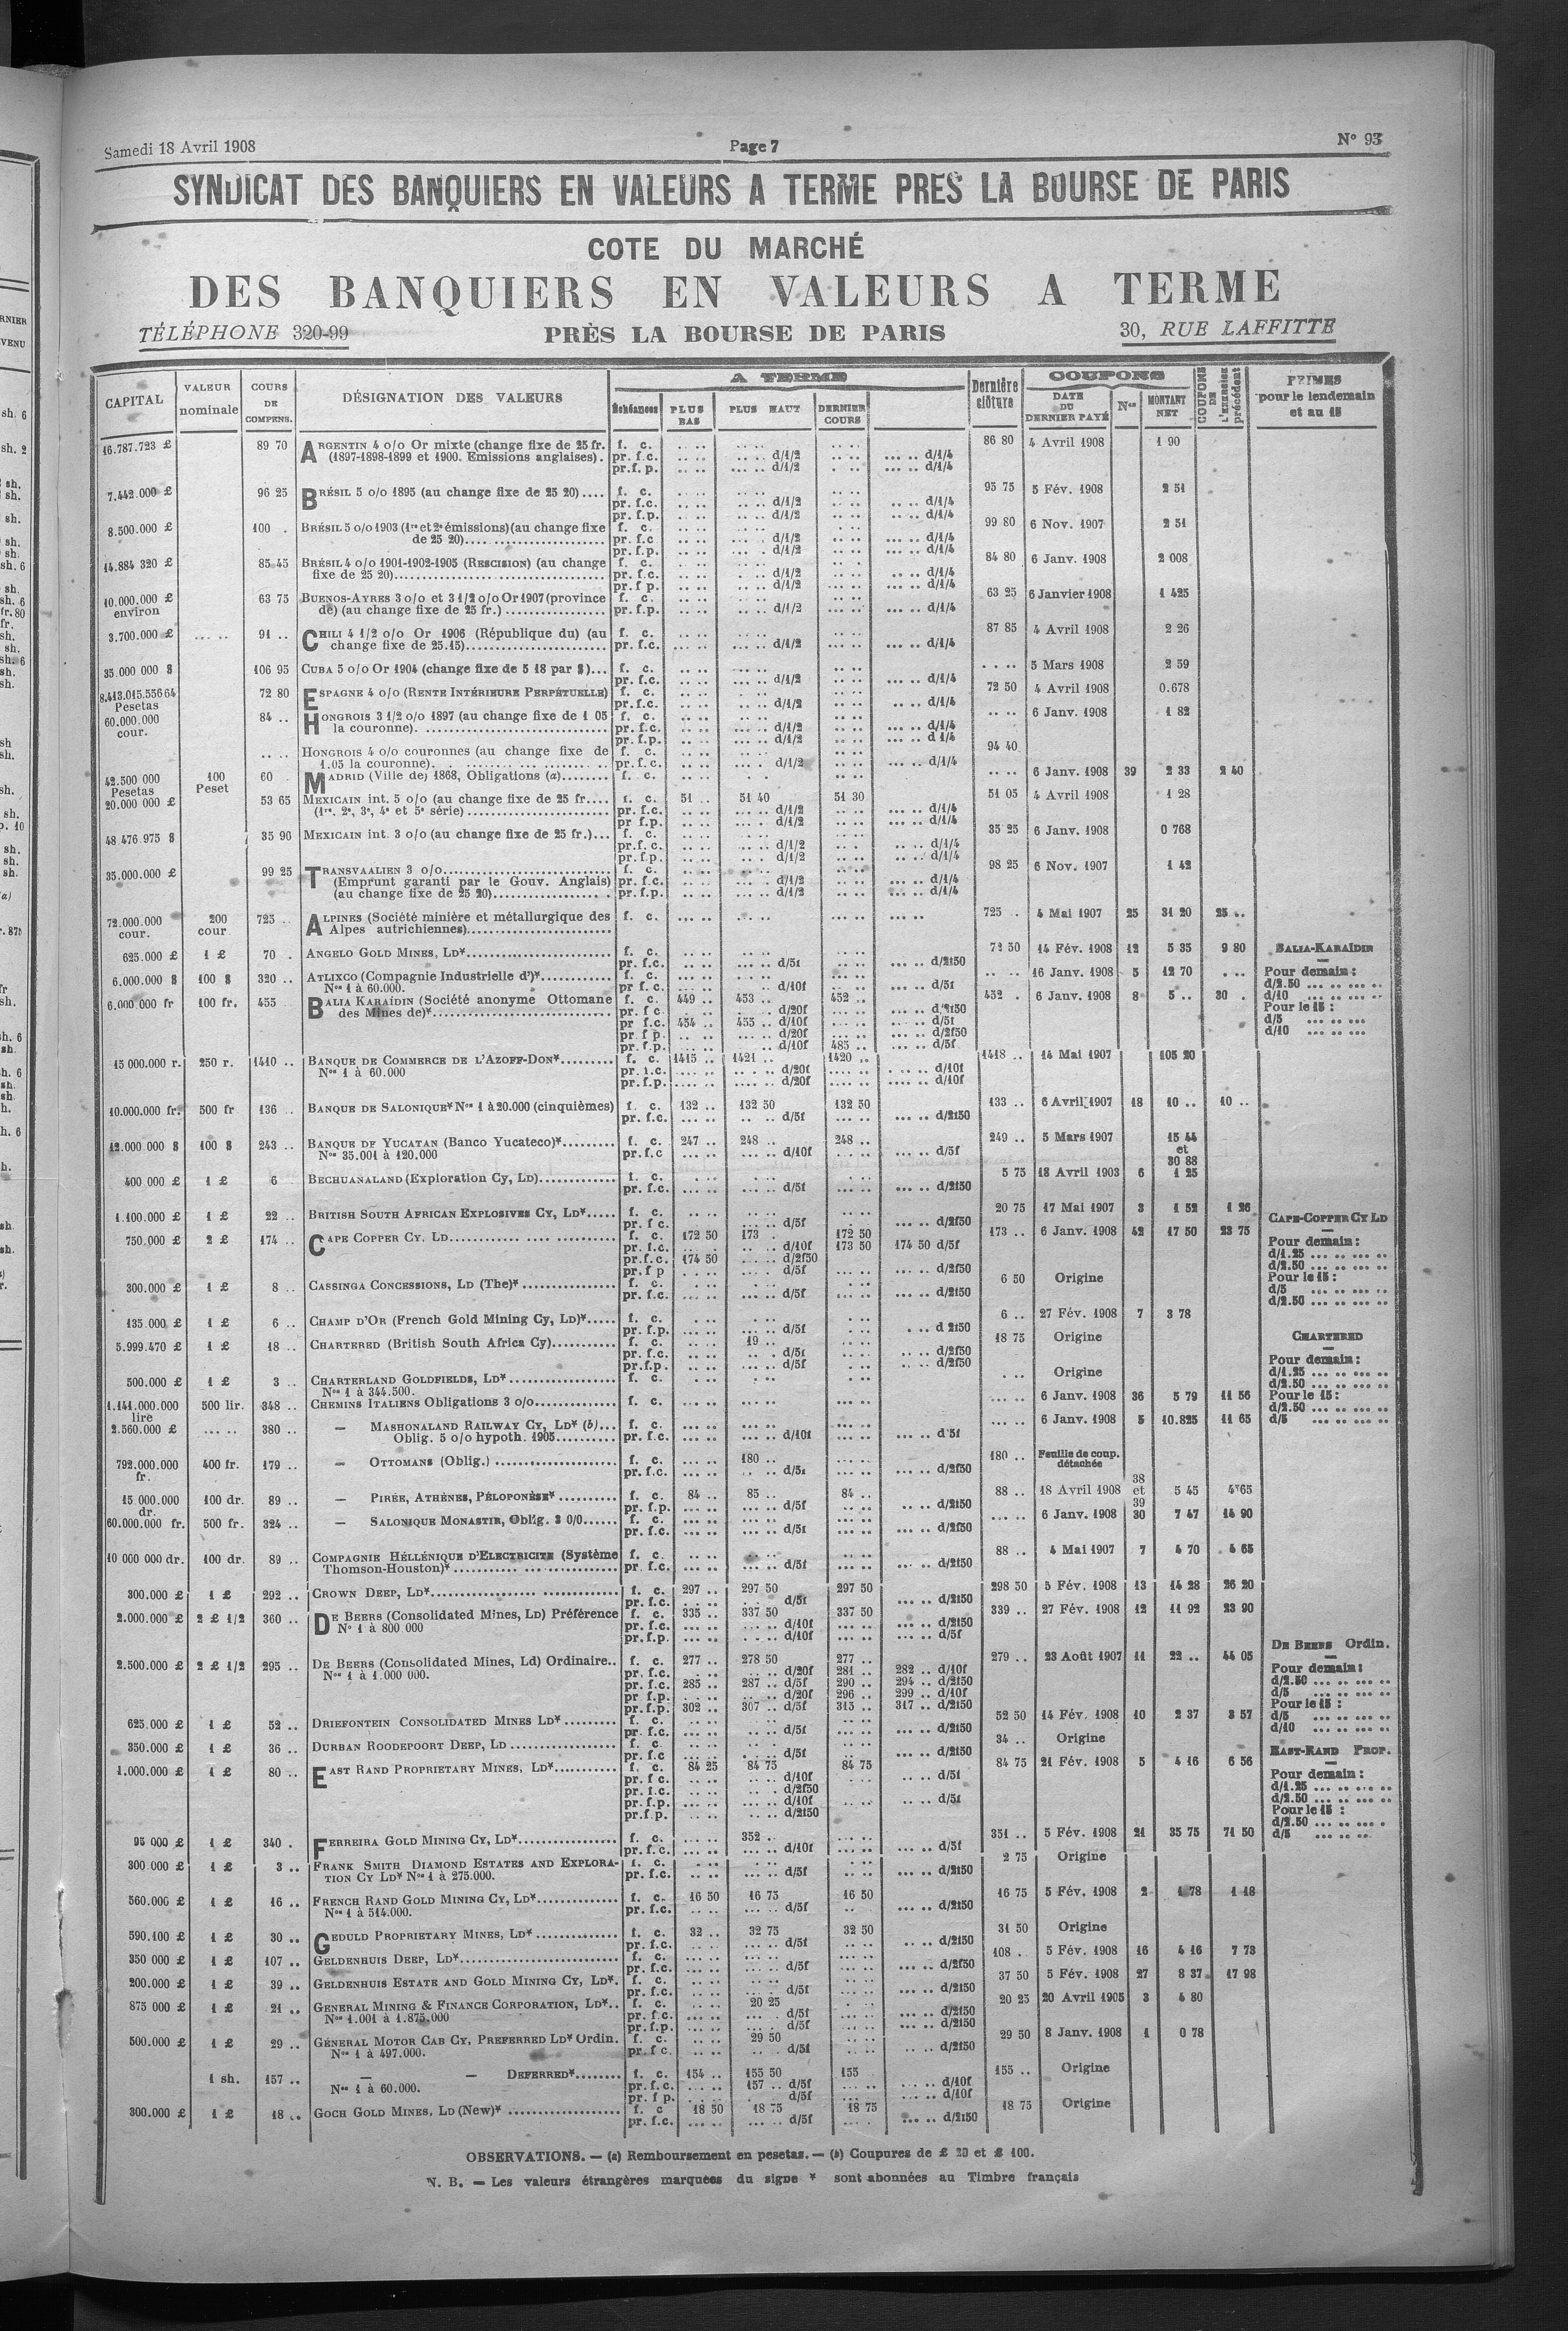 Samedi 18 Avril 1908 Page 7 N° 93
SYNDICAT DES BANQUIERS EN VALEURS A TERME PRES LA BOURSE DE PARIS
COTE DU MARCHÉ
DES BANQUIERS EN VALEURS A TERME
TÉLÉPHONE 320-99 PRÈS LA BOURSE DE PARIS 30, RUE LAFFITTE
CAPITAL VALEUR nominale COURS DE COMPENS. DÉSIGNATION DES VALEURS A TERME Échéances PLUS BAS PLUS HAUT DERNIER COURS Dernière clôture COUPONS DATE DU DERNIER PAYÉ Nos MONTANT NET COUPONS DE L'Exercice précédent PRIMES pour le lendemain et au 15
16.787.723 £ 89 70 ARGENTIN 4 o/o Or mixte (change fixe de 25 fr. f. c. 86 80 4 Avril 1908 1 90
(1897-1898-1899 et 1900. Emissions anglaises). pr. f.c. d/1/2 d/1/4
pr.f.p. d/1/2 d/1/4
7.442.000 £ 96 25 BRÉSIL 5 o/o 1895 (au change fixe de 25 20).... f. c. 95 75 5 Fév. 1908 2 51
pr. f.c. d/1/2 d/1/4
pr.f.p. d/1/2 d/1/4
8.500.000 £ 100 . BRÉSIL 5 o/o 1903 (1re et 2e émissions)(au change fixe f. c. 99 80 6 Nov. 1907 2 51
de 25 20) pr. f.c d/1/2 d/1/4
pr.f.p. d/1/2 d/1/4
14.884 320 £ 85 45 BRÉSIL 4 o/o 1901-1902-1905 (RESCISION) (au change f. c. 84 80 6 Janv. 1908 2 008
fixe de 25 20) pr. f.c. d/1/2 d/1/4
pr. f p. d/1/2 d/1/4
10.000.000 £ environ 63 75 BUENOS-AYRES 3 o/o et 3 1/2 o/o Or 1907 (province f. c. 63 25 6 Janvier 1908 1 425
de) (au change fixe de 25 fr.) pr.f.p. d/1/2 d/1/4
3.700.000 £ 91 .. CHILI 4 1/2 o/o Or 1906 (République du) (au f. c. 87 85 4 Avril 1908 2 26
change fixe de 25.15) pr. f.c. d/1/2 d/1/4
35.000 000 $ 106 95 CUBA 5 o/o Or 1904 (change fixe de 5 18 par $)... f. c. 5 Mars 1908 2 59
pr.f.c. d/1/2 d/1/4
8.413.015.556 64 Pesetas 72 80 ESPAGNE 4 o/o (RENTE INTÉRIEURE PERPÉTUELLE) f. c. 72 50 4 Avril 1908 0.678
pr.f.c. d/1/2 d/1/4
60.000.000 cour. 84 .. HONGROIS 3 1/2 o/o 1897 (au change fixe de 1 05 f. c. 6 Janv. 1908 1 82
la couronne). pr. f.c. d/1/2 d/1/4
pr.f.p. d/1/2 d 1/4
HONGROIS 4 o/o couronnes (au change fixe de f. c. 94 40
1.05 la couronne). pr.f.c. d/1/2 d/1/4
42.500 000 Pesetas 100 Peset 60 MADRID (Ville de) 1868, Obligations (a) f. c. 6 Janv. 1908 39 2 33 2 40
20.000 000 £ 53 65 MEXICAIN int. 5 o/o (au change fixe de 25 fr.... f. c. 51 .. 51 40 51 30 51 05 4 Avril 1908 1 28
(1re, 2e, 3e, 4e et 5e série) pr. f.c. d/1/2 d/1/4
pr f.p. d/1/2 d/1/4
48 476 975 $ 35 90 MEXICAIN int. 3 o/o (au change fixe de 25 fr.)... f. c. 35 25 6 Janv. 1908 0 768
pr.f. c. d/1/2 d/1/4
pr. f.p. d/1/2 d/1/4
35.000.000 £ 99 25 TRANSVAALIEN 3 o/o f. c. 98 25 6 Nov. 1907 1 42
(Emprunt garanti par le Gouv. Anglais) pr. f.c. d/1/2 d/1/4
(au change fixe de 25 20) pr.f.p. d/1/2 d/1/4
72.000.000 cour. 200 cour 725 .. ALPINES (Société minière et métallurgique des f. c. 725 .. 4 Mai 1907 25 31 20 25 ..
Alpes autrichiennes)
625.000 £ 1 £ 70 . ANGELO GOLD MINES, LD* f. c. 72 50 14 Fév. 1908 12 5 35 9 80 BALIA-KARAÏDIN
pr. f.c. d/5f d/2f50
6.000.000 $ 100 $ 320 .. ATLIXCO (Compagnie Industrielle d')* f. c. 16 Janv. 1908 5 12 70 Pour demain :
Nos 1 à 60.000. pr f.c. d/10f d/5f d/2.50
6.000.000 fr 100 fr. 455 BALIA KARAÏDIN (Société anonyme Ottomane f. c. 449 .. 453 .. 452 .. 452 . 6 Janv. 1908 8 5 .. 30 . d/10
des Mines de)* pr. f c d/20f d/2f50 Pour le 15 :
pr f.c. 454 .. 455 .. d/10f d/5f d/5
pr f p. d/20f d/2f50 d/10
pr. f.p. d/10f 485 .. d/5f
15 000.000 r. 250 r. 1410 .. BANQUE DE COMMERCE DE L'AZOFF-DON* f. c. 1415 .. 1421 .. 1420 .. 1418 .. 14 Mai 1907 105 20
Nos 1 à 60.000 pr. f.c. d/20f d/10f
pr.f.p. d/20f d/10f
10.000.000 fr. 500 fr 136 BANQUE DE SALONIQUE* Nos 1 à 20.000 (cinquièmes) f. c. 132 .. 132 50 132 50 133 .. 6 Avril 1907 18 10 .. 10 ..
pr. f.c. d/5f d/2f50
12.000 000 $ 100 $ 243 .. BANQUE DE YUCATAN (Banco Yucateco)* f. c. 247 .. 248 .. 248 .. 249 .. 5 Mars 1907 15 44 et 30 88
Nos 35.001 à 120.000 pr.f.c d/10f d/5f
400 000 £ 1 £ 6 BECHUANALAND (Exploration Cy, LD) f. c. 5 75 18 Avril 1903 6 1 25
pr. f.c. d/5f d/2f50
1.100.000 £ 1 £ 22 .. BRITISH SOUTH AFRICAN EXPLOSIVES CY, LD* f. c. 20 75 17 Mai 1907 3 1 52 1 26
pr. f c. d/5f d/2f50 CAPE-COPPER CY LD
750.000 £ 2 £ 174 .. CAPE COPPER CY. LD f. c. 172 50 173 . 172 50 173 .. 6 Janv. 1908 42 17 50 23 75 Pour demain :
pr. f.c. d/10f 173 50 174 50 d/5f d/1.25
pr.f.c. 174 50 d/2f50 d/2.50
pr. f p d/5f d/2f50 Pour le 15 :
300.000 £ 1 £ 8 .. CASSINGA CONCESSIONS, LD (The)* f. c. 6 50 Origine d/5
pr. f.c. d/5f d/2f50 d/2.50
135.000 £ 1 £ 6 .. CHAMP D'OR (French Gold Mining Cy, LD)* f. c. 6 .. 27 Fév. 1908 7 3 78
pr. f.p. d/5f d 2f50
5.999.470 £ 1 £ 18 .. CHARTERED (British South Africa Cy) f. c. 19 .. 18 75 Origine CHARTERED
pr. f.c. d/5f d/2f50
pr.f.p. d/5f d/2f50 Pour demain :
500.000 £ 1 £ 3 .. CHARTERLAND GOLDFIELDS, LD* f. c. Origine d/1.25
Nos 1 à 344.500. d/2.50
1.141.000.000 lire 500 lir. 348 .. CHEMINS ITALIENS Obligations 3 o/o f. c. 6 Janv. 1908 36 5 79 11 56 Pour le 15 :
d/2.50
2.560.000 £ 380 .. — MASHONALAND RAILWAY CY, LD* (b)... f. c. 6 Janv. 1908 5 10.825 11 65 d/5
Oblig. 5 o/o hypoth. 1905 pr. f.c. d/10f d 5f
792.000.000 fr. 400 fr. 179 .. — OTTOMANS (Oblig.) f. c. 180 .. 180 .. Feuille de coup. détachée
pr. f.c. d/5f d/2f50
15.000.000 dr. 100 dr. 89 .. — PIRÉE, ATHÈNES, PÉLOPONÈSE* f. c. 84 .. 85 .. 84 .. 88 .. 18 Avril 1908 38 et 39 5 45 4 65
pr. f.p. d/5f d/2f50
60.000.000 fr. 500 fr. 324 .. — SALONIQUE MONASTIR, Oblig. 3 0/0 f. c. 6 Janv. 1908 30 7 47 14 90
pr. f.c. d/5f d/2f50
10 000 000 dr. 100 dr. 89 .. COMPAGNIE HÉLLÉNIQUE D'ELECTRICITE (Système f. c. 88 .. 4 Mai 1907 7 4 70 4 65
Thomson-Houston)* pr f.c. d/5f d/2f50
300.000 £ 1 £ 292 .. CROWN DEEP, LD* f. c. 297 .. 297 50 297 50 298 50 5 Fév. 1908 13 14 28 26 20
pr. f.c. d/5f d/2f50
2.000.000 £ 2 £ 1/2 360 .. DE BEERS (Consolidated Mines, LD) Préférence f. c. 335 .. 337 50 337 50 339 .. 27 Fév. 1908 12 11 92 23 90
N° 1 à 800.000 pr. f.c. d/10f d/2f50
pr.f.p. d/10f d/5f DE BEERS Ordin.
2.500.000 £ 2 £ 1/2 295 .. DE BEERS (Consolidated Mines, Ld) Ordinaire.. f. c. 277 .. 278 50 277 .. 279 .. 23 Août 1907 11 22 .. 44 05
Nos 1 à 1.000 000. pr. f.c. d/20f 281 .. 282 .. d/10f Pour demain :
pr. f.c. 285 .. 287 .. d/5f 290 .. 294 .. d/2f50 d/2.50
pr f.p. d/20f 296 .. 299 .. d/10f d/5
pr. f.p. 302 .. 307 .. d/5f 315 .. 317 .. d/2f50 Pour le 15 :
625.000 £ 1 £ 52 .. DRIEFONTEIN CONSOLIDATED MINES LD* f. c. 52 50 14 Fév. 1908 10 2 37 3 57 d/5
pr. f.c. d/5f d/2f50 d/10
350.000 £ 1 £ 36 .. DURBAN ROODEPOORT DEEP, LD f. c. 34 .. Origine
pr. f.c d/5f d/2f50 EAST-RAND PROP.
1.000.000 £ 1 £ 80 .. EAST RAND PROPRIETARY MINES, LD* f. c. 84 25 84 75 84 75 84 75 21 Fév. 1908 5 4 16 6 56
pr. f c. d/10f d/5f Pour demain :
pr. f.c. d/2f50 d/1.25
pr. f.p. d/10f d/5f d/2.50
pr.f.p. d/2f50 Pour le 15 :
d/2.50
95 000 £ 1 £ 340 . FERREIRA GOLD MINING CY, LD* f. c. 352 .. 351 .. 5 Fév. 1908 21 35 75 71 50 d/5
pr. f.c. d/10f d/5f
300 000 £ 1 £ 3 .. FRANK SMITH DIAMOND ESTATES AND EXPLORA- f. c. 2 75 Origine
TION CY LD* Nos 1 à 275.000. pr. f.c. d/5f d/2f50
560.000 £ 1 £ 16 .. FRENCH RAND GOLD MINING CY, LD* f. c. 16 50 16 75 16 50 16 75 5 Fév. 1908 2 1 78 1 18
Nos 1 à 514.000. pr. f.c. d/5f d/2f50
590.100 £ 1 £ 30 .. GEDULD PROPRIETARY MINES, LD* f. c. 32 .. 32 75 32 50 31 50 Origine
pr. f.c. d/5f d/2f50
350 000 £ 1 £ 107 .. GELDENHUIS DEEP, LD* f. c. 108 . 5 Fév. 1908 16 4 16 7 73
pr. f.c. d/5f d/2f50
200.000 £ 1 £ 39 .. GELDENHUIS ESTATE AND GOLD MINING CY, LD*. f. c. 37 50 5 Fév. 1908 27 8 37 17 98
pr. f.c. d/5f d/2f50
875 000 £ 1 £ 21 .. GENERAL MINING & FINANCE CORPORATION, LD*.. f. c. 20 25 20 25 20 Avril 1905 3 4 80
Nos 1.001 à 1.875.000 pr. f.c. d/5f d/2f50
pr. f.p. d/5f d/2f50
500.000 £ 1 £ 29 .. GÉNÉRAL MOTOR CAB CY, PREFERRED LD* Ordin. f. c. 29 50 29 50 8 Janv. 1908 1 0 78
Nos 1 à 497.000. pr. f c. d/5f d/2f50
1 sh. 157 .. — — DEFERRED* f. c. 154 .. 155 50 155 155 .. Origine
Nos 1 à 60.000. pr. f.c. 157 .. d/5f d/10f
pr. f p. d/5f d/10f
300.000 £ 1 £ 18 .. GOCH GOLD MINES, LD (New)* f. c 18 50 18 75 18 75 18 75 Origine
pr. f.c. d/5f d/2f50
OBSERVATIONS. — (a) Remboursement en pesetas. — (b) Coupures de £ 20 et £ 100.
N. B. — Les valeurs étrangères marquées du signe * sont abonnées au Timbre français